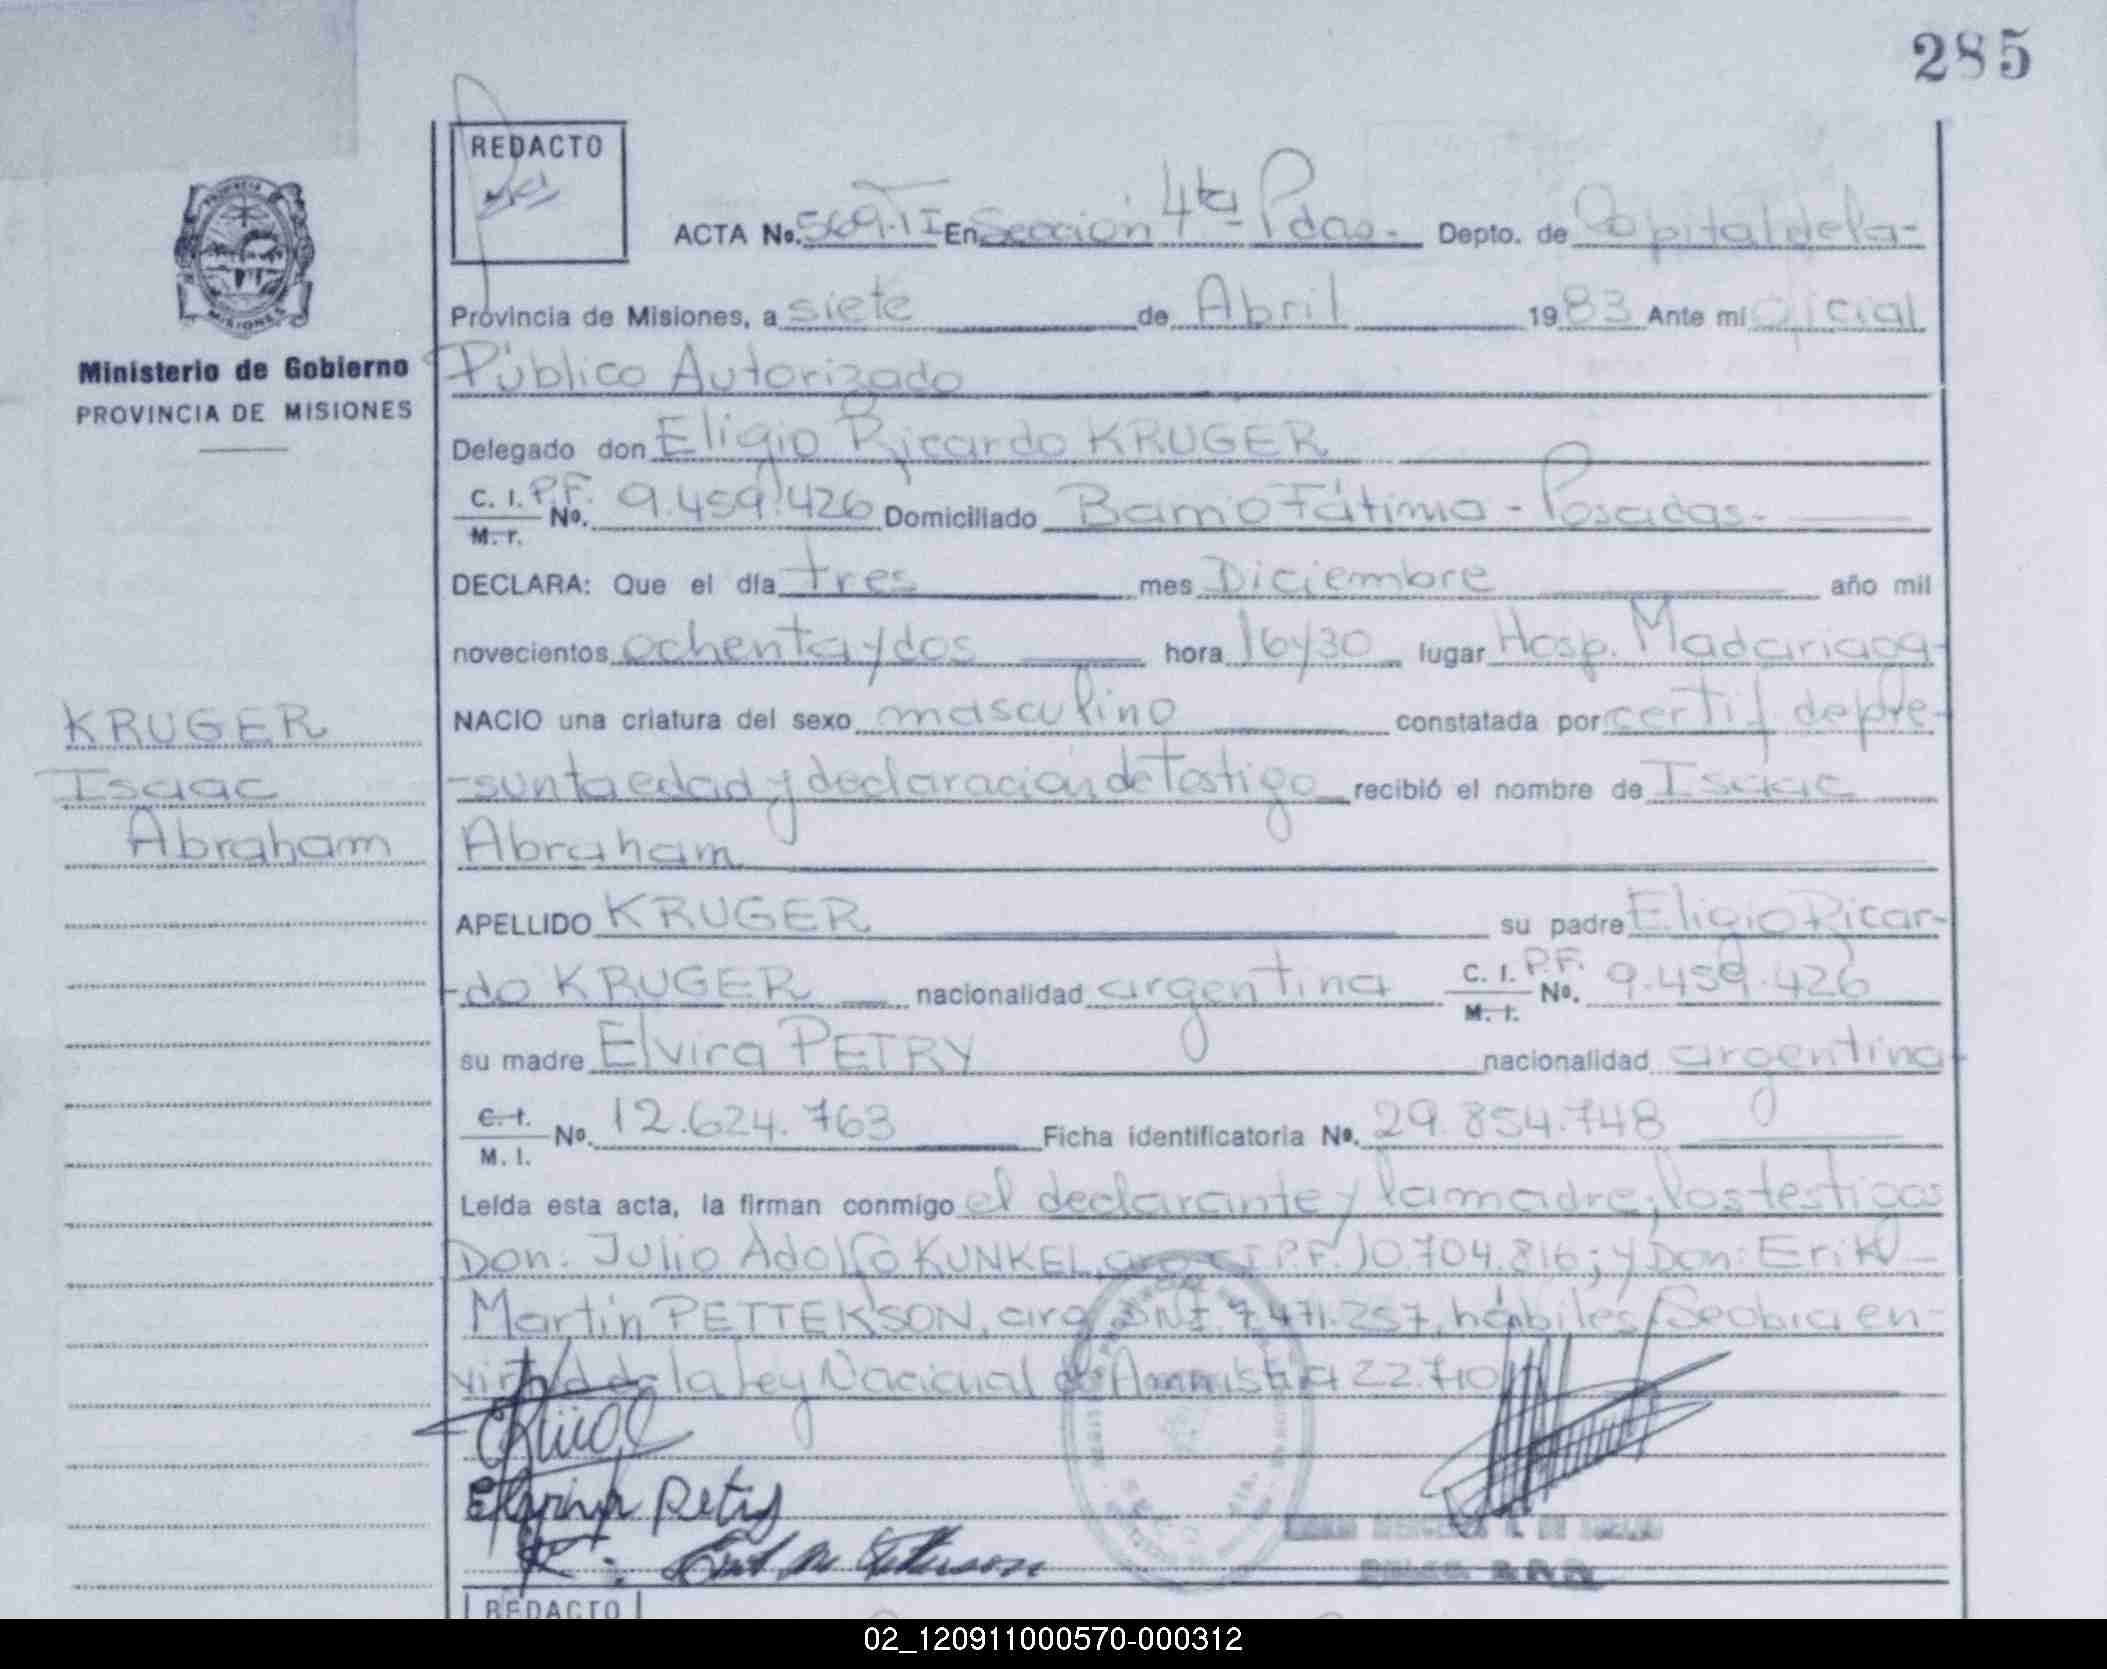 285
REDACTO
ACTA No. 569.TI En Sección 4ta Pdas.- Depto. de Capital de la-
PROVINCIA
MISIONES
Ministerio de Gobierno
PROVINCIA DE MISIONES
Provincia de Misiones, a siete de Abril 1983 Ante mí Oficial
Público Autorizado
Delegado don Eligio Ricardo KRUGER
C. I. P.F. No. 9.459.426 Domiciliado Barrio Fátima - Posadas.-
M. I.
DECLARA: Que el día tres mes Diciembre año mil
novecientos ochenta y dos hora 16y30 lugar Hosp. Madariaga-
NACIO una criatura del sexo masculino constatada por certif de pre-
-sunta edad y declaración de Testigo recibió el nombre de Isaac
Abraham
KRUGER
Isaac
Abraham
APELLIDO KRUGER su padre Eligio Ricar-
-do KRUGER nacionalidad argentina C. I. P.F. No. 9.459.426
M. I.
su madre Elvira PETRY nacionalidad argentina
C. I. No. 12.624.763 Ficha identificatoria No. 29.854.748
M. I.
Leída esta acta, la firman conmigo el declarante y la madre; los testigos
Don: Julio Adolfo KUNKEL, arg. CI P.F. 10.704.816; y Don: Erik
Martín PETTERSON, arg. DNI. 7.471.257, hábiles/Se obia en-
virtud de la Ley Nacional de Amnistía 22.710
REDACTO
02_120911000570-000312